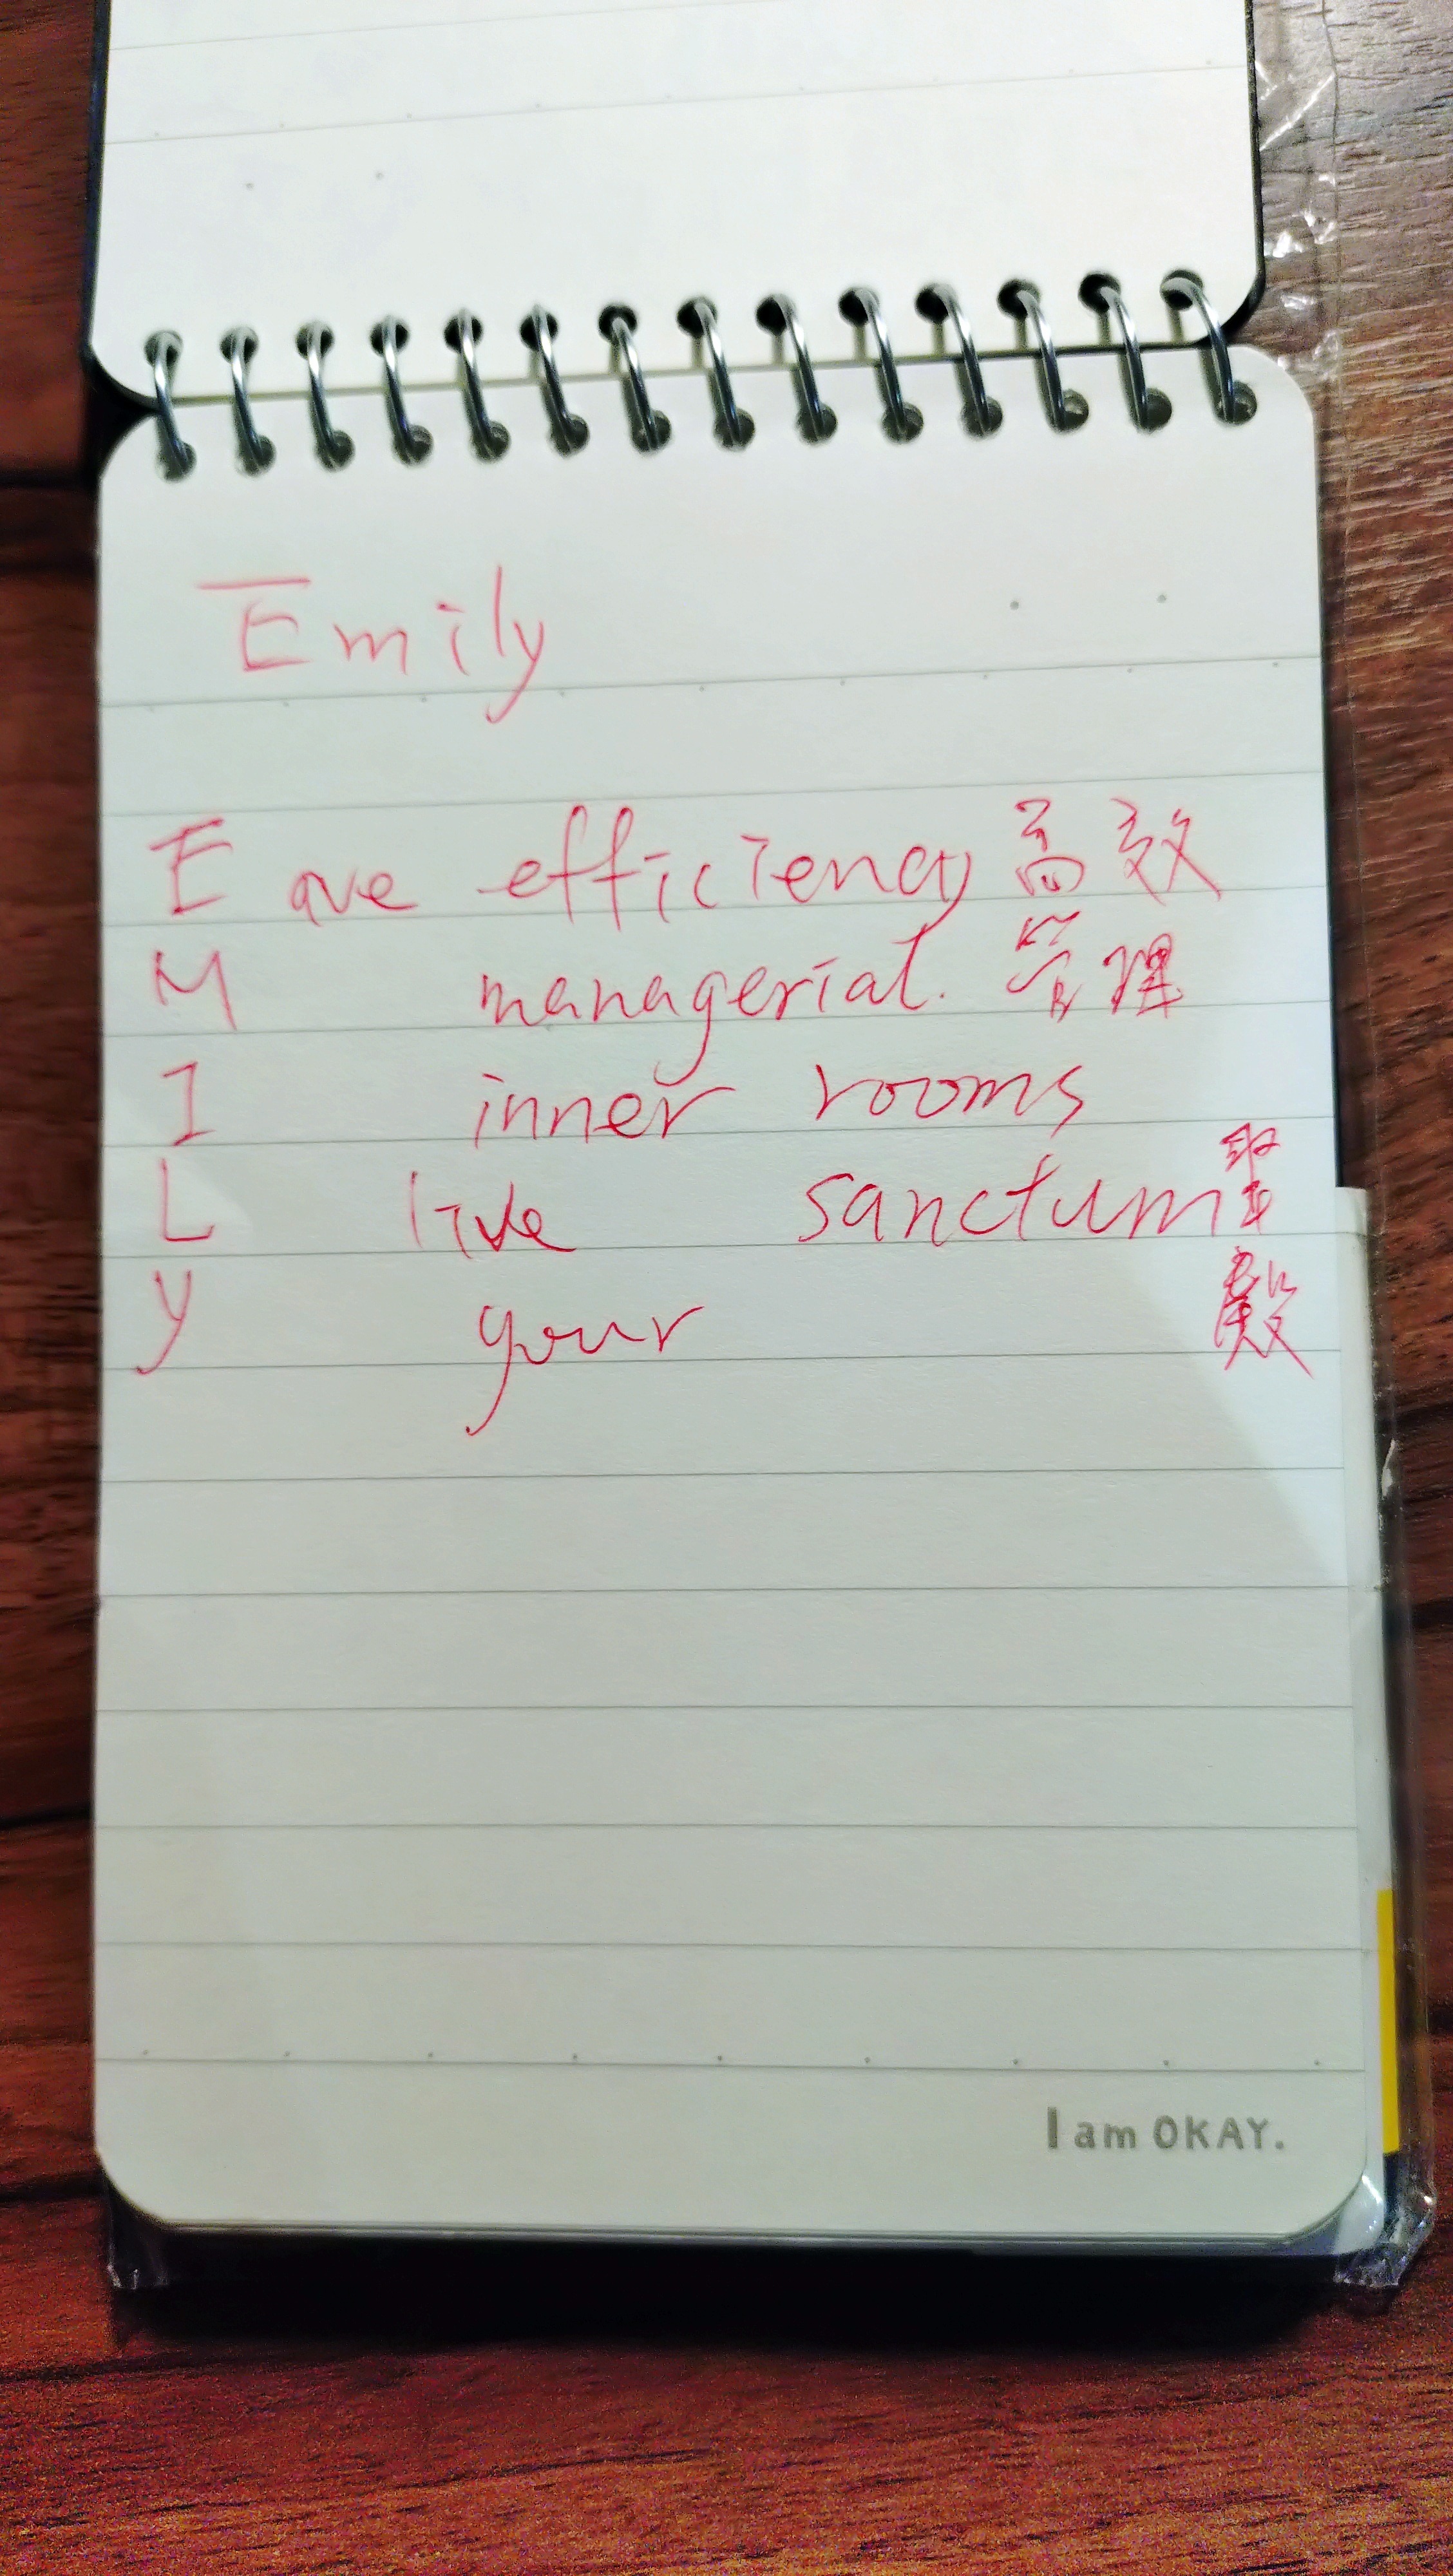 Emily
E are efficiency 高效
M managerial. 管理
I inner rooms
L live sanctum 聖
y your 殿
I am OKAY.